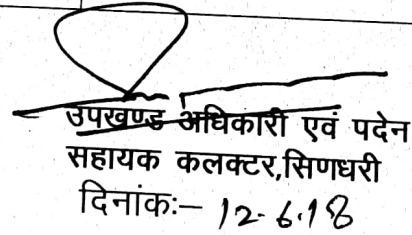 उपखण्ड अधिकारी एवं पदेन
सहायक कलक्टर,सिणधरी
दिनांकः– 12.6.18